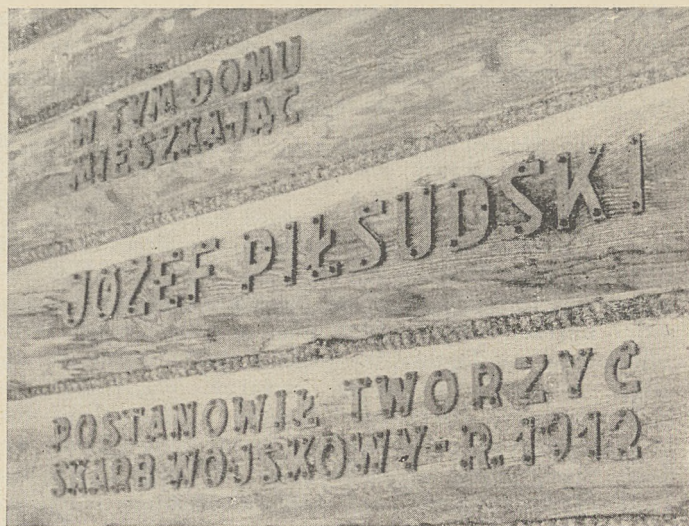 W TYM DOMU
MIESZKAJĄC
JÓZEF PIŁSUDSKI
POSTANOWIŁ TWORZYĆ
SKARB WOJSKOWY - R. 1912